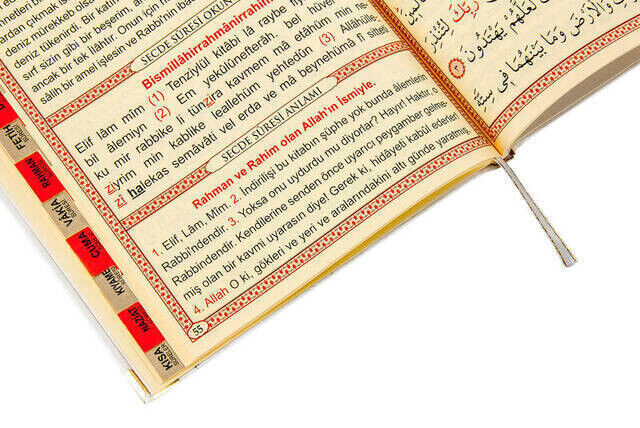 deniz mürekkep olsa
deniz tükenirdi. Bir katı
sırf sizin gibi bir beşerim, an
ancak bir tek ilâhtır. Onun için h
sâlih bir amel işlesin ve Rabbi'nin ibad
SECDE SÛRESİ OKUN
Bismillâhirrahmânirrahîm
Elif lâm mîm (1) Tenziylül kitâbi lâ raybe fi
bil âlemiyn (2) Em yekûlûnefterâh. bel hü
ku mir rabbike li tünzira kavmem mâ etâhüm min ne
ziyrim min kablike leallehüm yehtedûn (3) Allâhülle
zî halekas semâvâti vel erda ve mâ beynehümâ fî sitteti
SECDE SÛRESİ ANLAMI
Rahman ve Rahim olan Allah'ın İsmiyle.
1. Elif, Lâm, Mîm. 2. İndirilişi bu kitabın şüphe yok bunda âlemlerin
Rabbi'ndendir. 3. Yoksa onu uydurdu mu diyorlar? Hayır! Haktır, o
Rabbindendir. Kendilerine senden önce uyarıcı peygamber gelme-
miş olan bir kavmi uyarasın diye! Gerek ki, hidâyeti kabûl ederler!
4. Allah O ki, gökleri ve yeri ve aralarındakini altı günde yaratmış,
55
FETİH
RAHMAN
VÂKIA
CUMA
KIYAME
NAZİAT
KISA
SÛRELER
رَبِّكَ لِتُنْذِرَ
لَعَلَّهُمْ يَهْتَدُونَ
وَالْاَرْضَ وَمَا بَيْنَهُمَا فِي سِتَّةِ